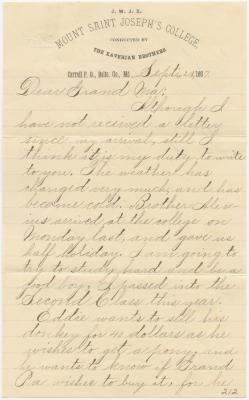 J. M. J. X.
MOUNT SAINT JOSEPH'S COLLEGE,
CONDUCTED BY
THE XAVERIAN BROTHERS.
Carroll P. O., Balto. Co., Md. Sept 25, 188
Dear Grand Ma;
Although I
have not received a letter
since my arrival, still I
think it is my duty, to write
to you. The weather has
changed very much, and has
become cold. Brother Alex-
ius arrived, at the college on
Monday last, and gave us
half holiday. I am going to
try to study hard and be a
good boy. I passed into the
Second Class this year.
Eddie wants to sell his
donkey for 40 dollars as he
wishes to get a pony, and
he wants to know if Grand
Pa wishes to buy it, for he
212